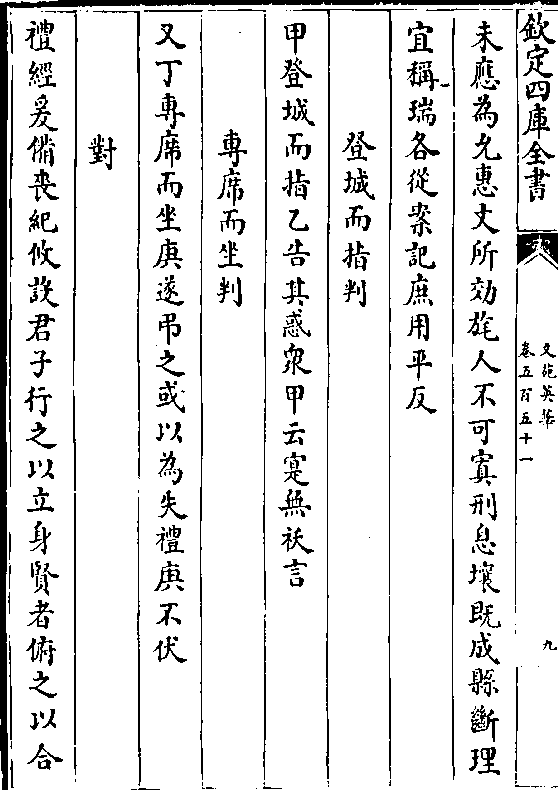 欽定四庫全書
文苑英華
卷五百五十一
九
未應為允惠文所効旄人不可寘刑息壤既成縣斷理
宜稱瑞各從案記庶用平反
登城而指判
甲登城而指乙告其惑衆甲云寔無祅言
專席而坐判
又丁專席而坐庚遂弔之或以為失禮庚不伏
對
禮經爰備喪紀攸設君子行之以立身賢者俯之以合